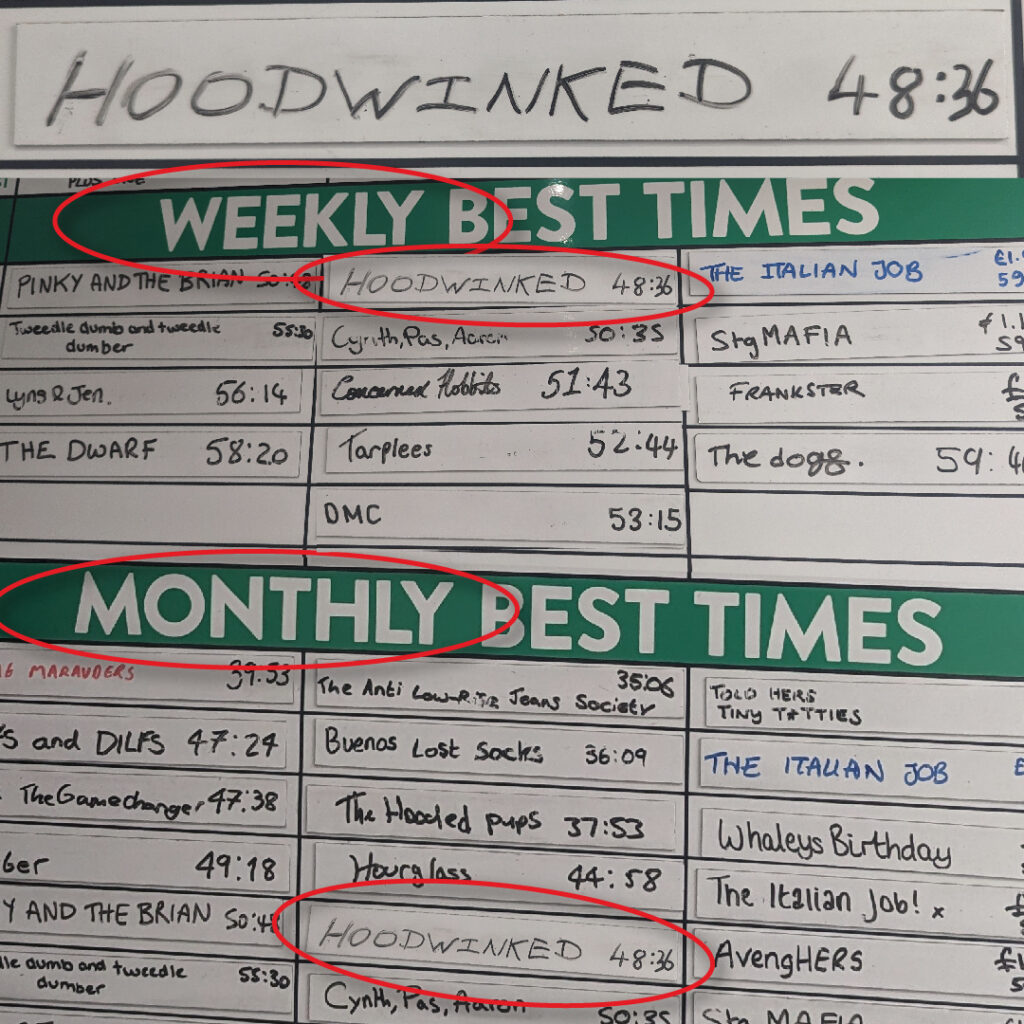 HOODWINKED 48:36
WEEKLY BEST TIMES
PINKY AND THE BRIAN
HOODWINKED 48:36
THE ITALIAN JOB
Tweedle dumb and tweedle dumber 55:30
Cynth, Pas, Aaron 50:35
Stg MAFIA
Lyng & Jen. 56:14
Concerned Hobbits 51:43
FRANKSTER
THE DWARF 58:20
Tarplees 52:44
The dogg.
DMC 53:15
MONTHLY BEST TIMES
MARAUDERS 39:53
The Anti Low-Rise Jeans Society 35:06
TOLD HERS
TINY T*TTIES
and DILFS 47:24
Buenos Lost Socks 36:09
THE ITALIAN JOB
The Gamechanger 47:38
The Hooded pups 37:53
Whaleys Birthday
49:18
Hourglass 44:58
The Italian Job! x
AND THE BRIAN
HOODWINKED 48:36
AvengHERS
dumb and tweedle dumber 55:30
Cynth, Pas, Aaron 50:35
Stg MAFIA